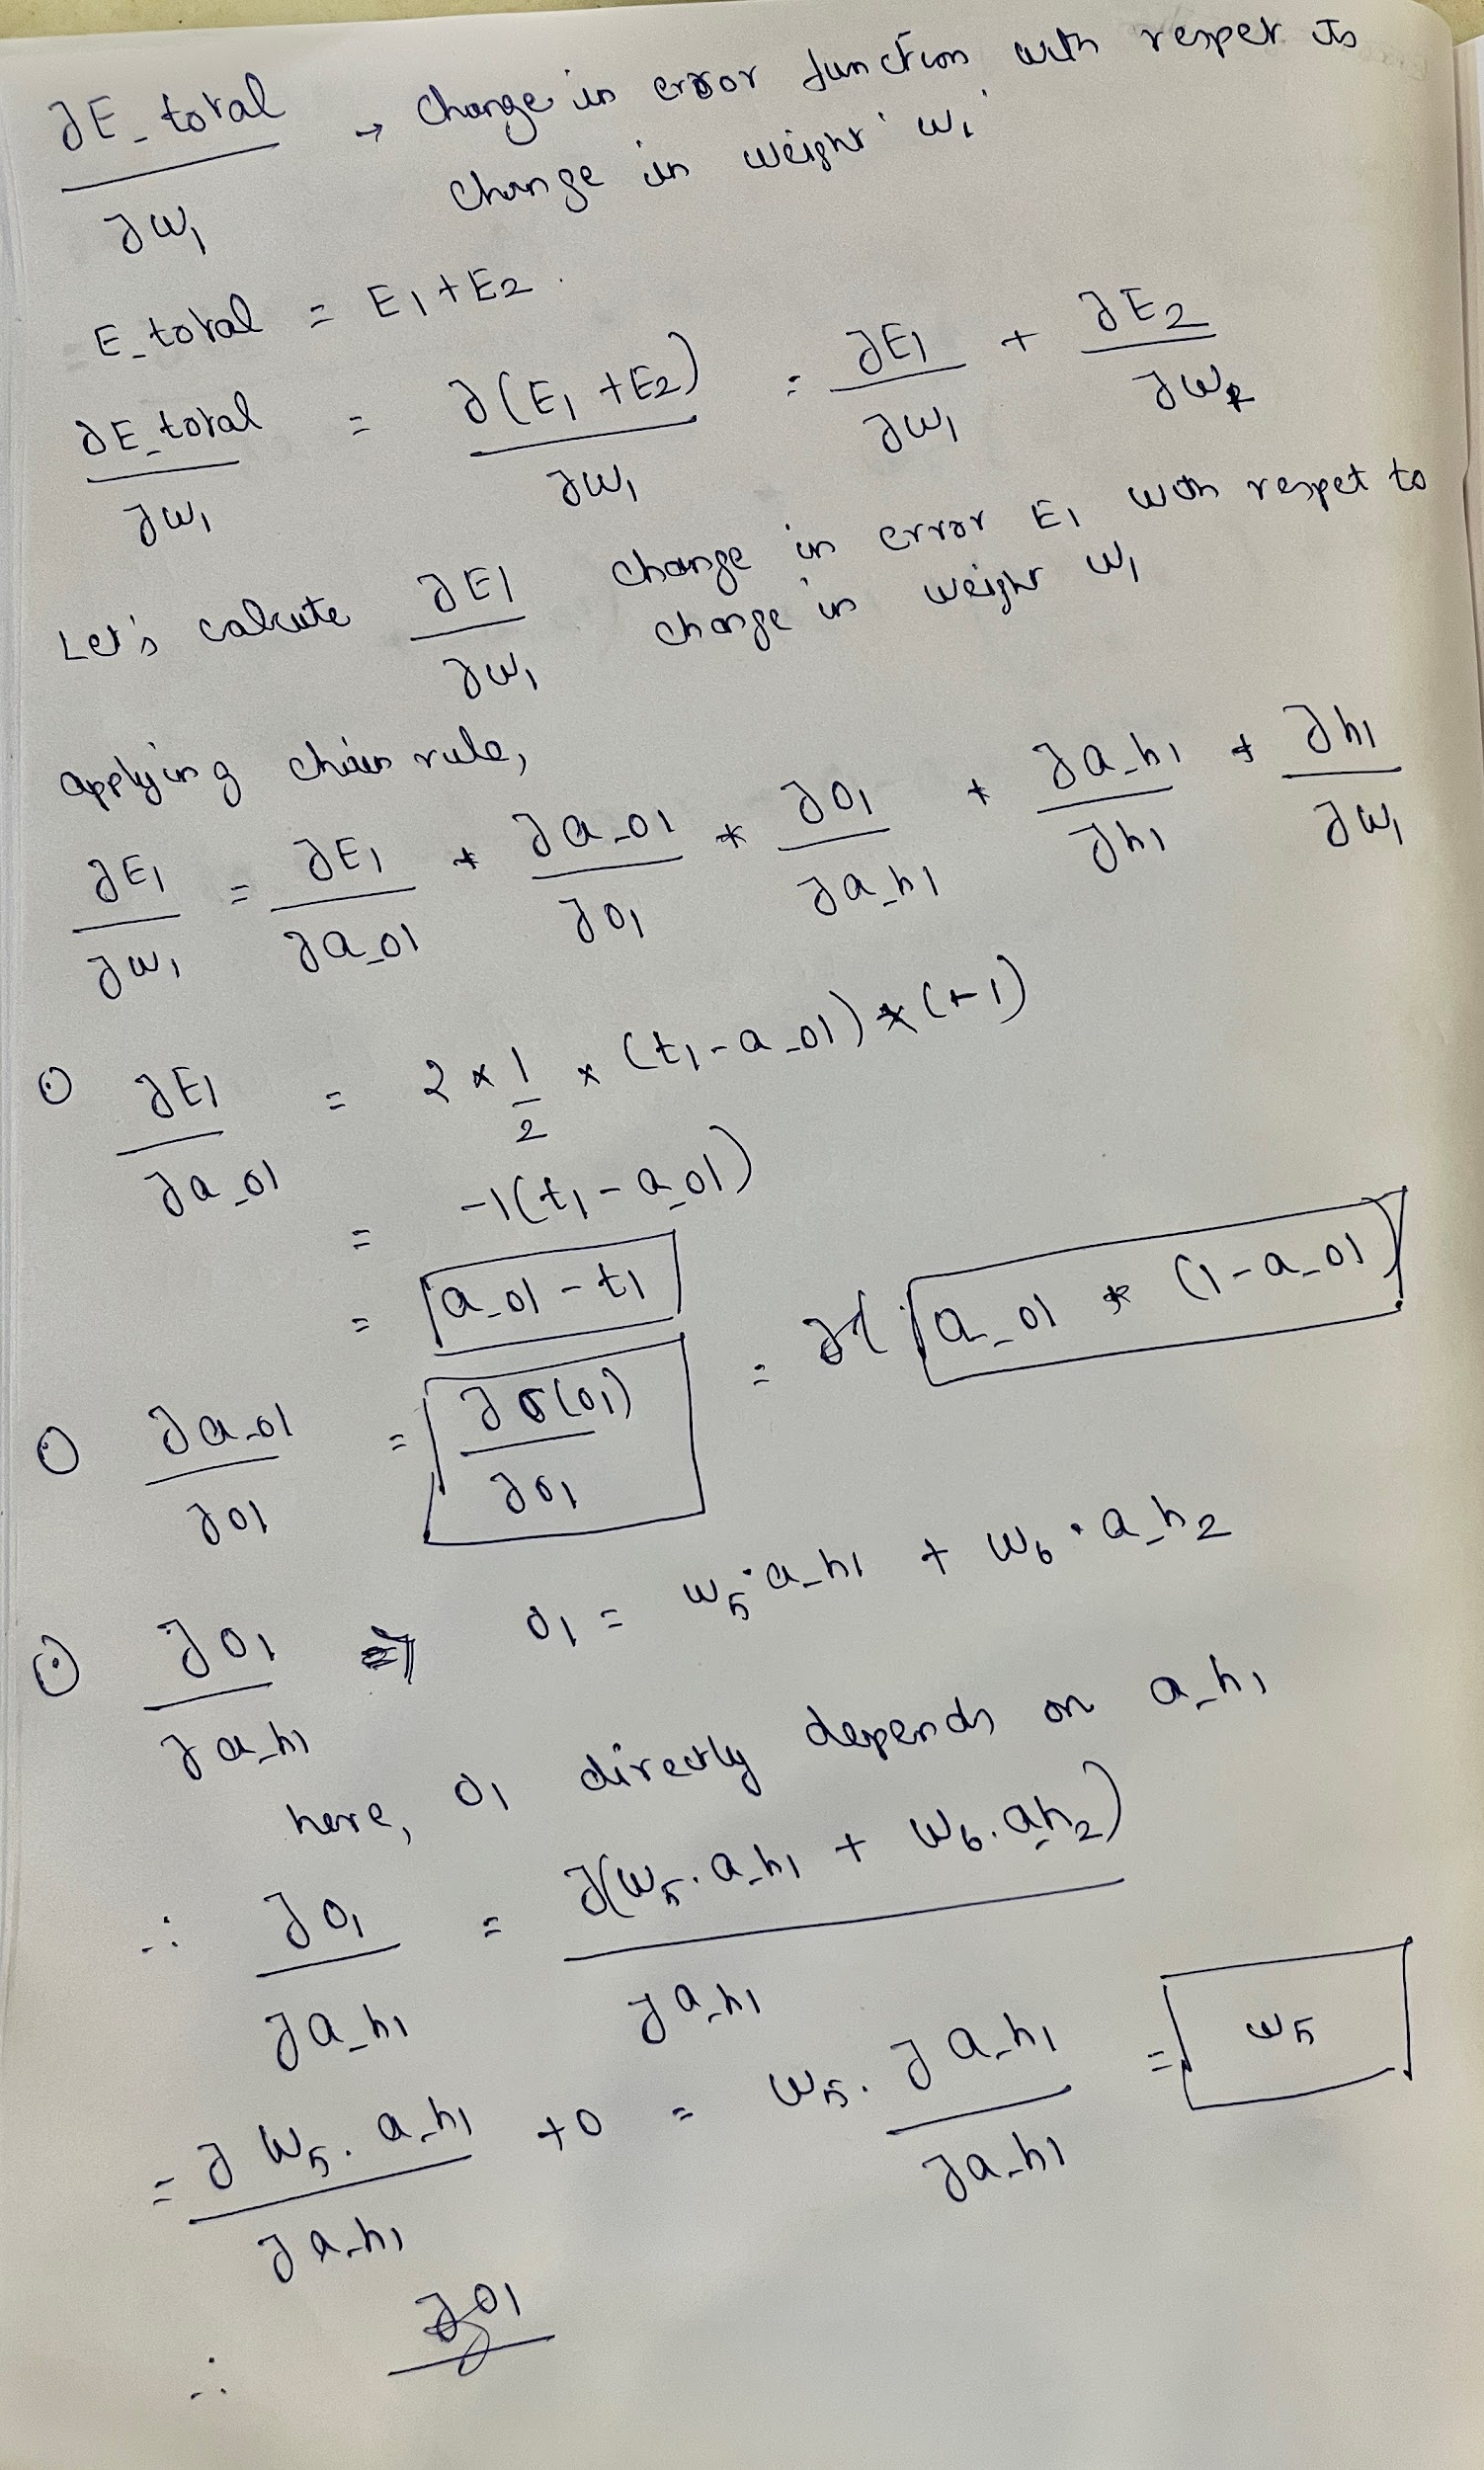 ∂E_total / ∂w1 → change in error function with respet to
change in weight 'w1'
E_total = E1 + E2.
∂E_total / ∂w1 = ∂(E1 + E2) / ∂w1 = ∂E1 / ∂w1 + ∂E2 / ∂w
Let's calcute ∂E1 / ∂w1 change in error E1 with respet to
change in weight w1
applying chain rule,
∂E1 / ∂w1 = ∂E1 / ∂a_o1 * ∂a_o1 / ∂o1 * ∂o1 / ∂a_h1 * ∂a_h1 / ∂h1 * ∂h1 / ∂w1
① ∂E1 / ∂a_o1 = 2 * 1/2 * (t1 - a_o1) * (-1)
= -1(t1 - a_o1)
= a_o1 - t1
① ∂a_o1 / ∂o1 = ∂σ(o1) / ∂o1 = a_o1 * (1 - a_o1)
① ∂o1 / ∂a_h1 ⇒ o1 = w5·a_h1 + w6·a_h2
here, o1 directly depends on a_h1
∴ ∂o1 / ∂a_h1 = ∂(w5·a_h1 + w6·a_h2) / ∂a_h1
= ∂ w5·a_h1 / ∂a_h1 + 0 = w5·∂a_h1 / ∂a_h1 = w5
∴ ∂o1